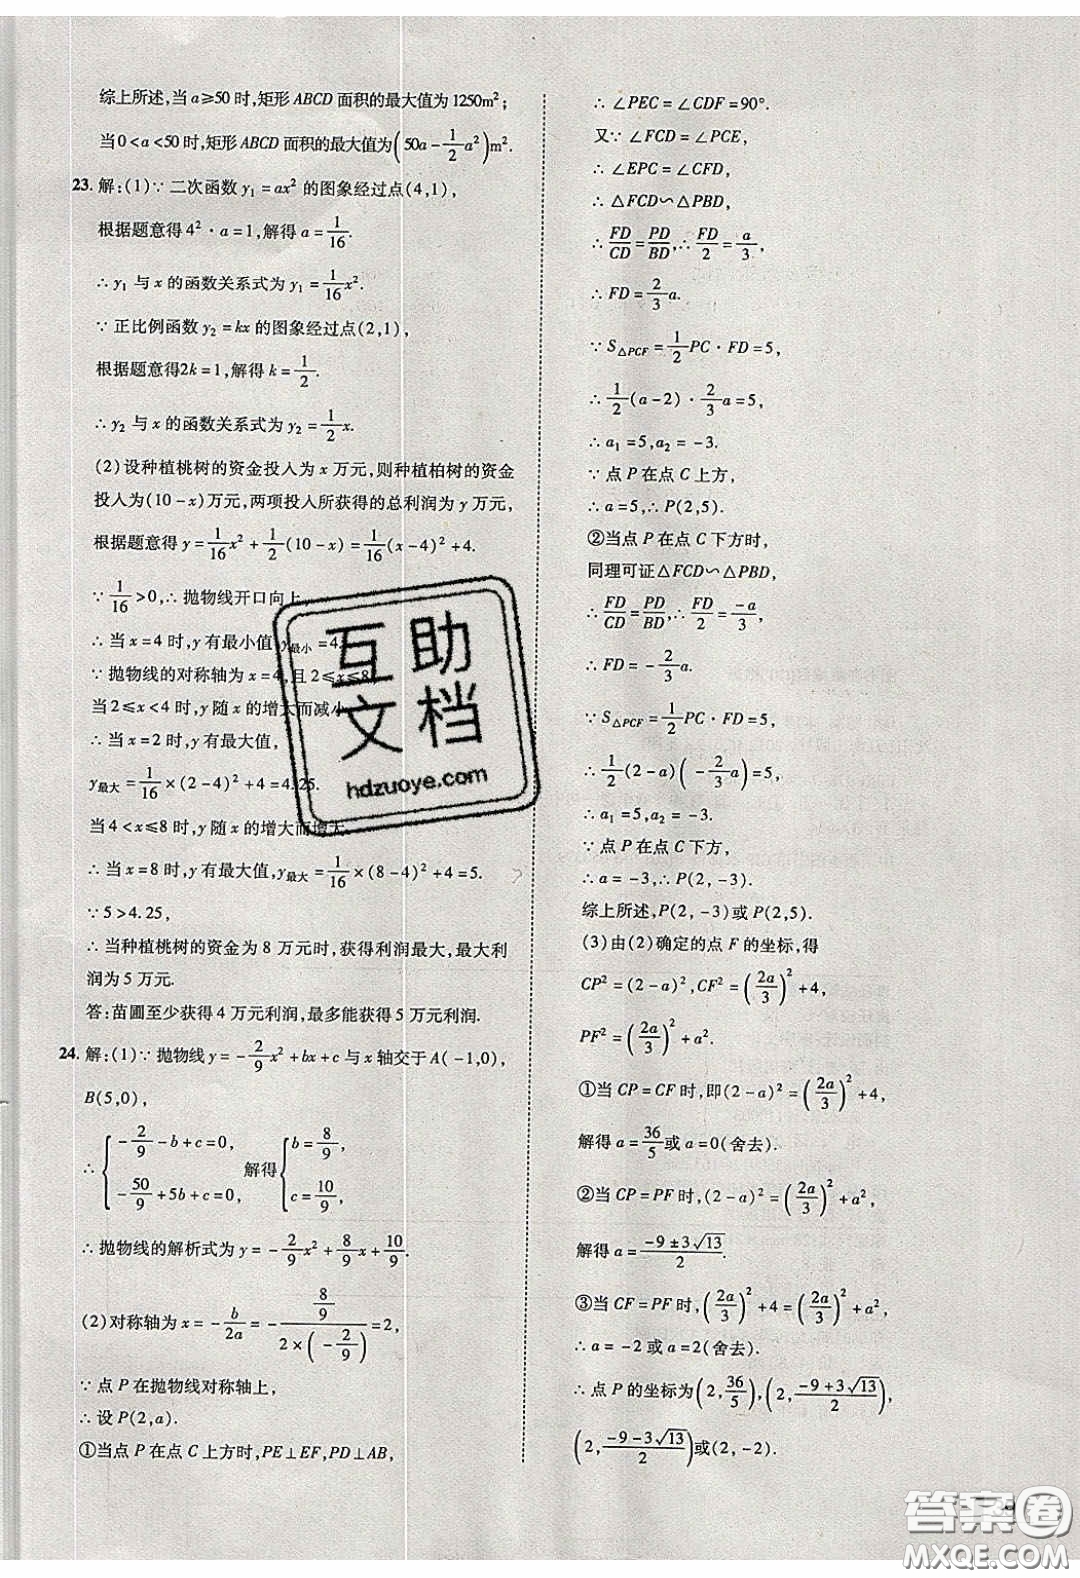 综上所述,当 a≥50 时,矩形 ABCD 面积的最大值为 1250m²;
当 0<a<50 时,矩形 ABCD 面积的最大值为(50a-1/2a²)m².
23. 解:(1)∵ 二次函数 y₁=ax² 的图象经过点(4,1),
根据题意得 4²·a=1,解得 a=1/16.
∴ y₁ 与 x 的函数关系式为 y₁=1/16x².
∵ 正比例函数 y₂=kx 的图象经过点(2,1),
根据题意得2k=1,解得 k=1/2.
∴ y₂ 与 x 的函数关系式为 y₂=1/2x.
(2)设种植桃树的资金投入为 x 万元,则种植柏树的资金
投入为(10-x)万元,两项投入所获得的总利润为 y 万元,
根据题意得 y=1/16x²+1/2(10-x)=1/16(x-4)²+4.
∵ 1/16>0,∴ 抛物线开口向上
∴ 当 x=4 时,y 有最小值,y最小=4.
∵ 抛物线的对称轴为 x=4,且 2≤x≤8,
当 2≤x<4 时,y 随 x 的增大而减小
∴ 当 x=2 时,y 有最大值,
y最大=1/16×(2-4)²+4=4.25.
当 4<x≤8 时,y 随 x 的增大而增大.
∴ 当 x=8 时,y 有最大值,y最大=1/16×(8-4)²+4=5.
∵ 5>4.25,
∴ 当种植桃树的资金为 8 万元时,获得利润最大,最大利
润为 5 万元.
答:苗圃至少获得 4 万元利润,最多能获得 5 万元利润.
24. 解:(1)∵ 抛物线 y=-2/9x²+bx+c 与 x 轴交于 A(-1,0),
B(5,0),
∴ {-2/9-b+c=0, -50/9+5b+c=0, 解得 {b=8/9, c=10/9,
∴ 抛物线的解析式为 y=-2/9x²+8/9x+10/9.
(2)对称轴为 x=-b/2a=-(8/9)/(2×(-2/9))=2,
∵ 点 P 在抛物线对称轴上,
∴ 设 P(2,a).
①当点 P 在点 C 上方时,PE⊥EF,PD⊥AB,
∴ ∠PEC=∠CDF=90°.
又∵ ∠FCD=∠PCE,
∴ ∠EPC=∠CFD,
∴ △FCD∽△PBD,
∴ FD/CD=PD/BD,∴ FD/2=a/3,
∴ FD=2/3a.
∵ S△PCF=1/2PC·FD=5,
∴ 1/2(a-2)·2/3a=5,
∴ a₁=5,a₂=-3.
∵ 点 P 在点 C 上方,
∴ a=5,∴ P(2,5).
②当点 P 在点 C 下方时,
同理可证△FCD∽△PBD,
∴ FD/CD=PD/BD,∴ FD/2=-a/3,
∴ FD=-2/3a.
∵ S△PCF=1/2PC·FD=5,
∴ 1/2(2-a)(-2/3a)=5,
∴ a₁=5,a₂=-3.
∵ 点 P 在点 C 下方,
∴ a=-3,∴ P(2,-3).
综上所述,P(2,-3)或 P(2,5).
(3)由(2)确定的点 F 的坐标,得
CP²=(2-a)²,CF²=(2a/3)²+4,
PF²=(2a/3)²+a².
①当 CP=CF 时,即(2-a)²=(2a/3)²+4,
解得 a=36/5或 a=0(舍去).
②当 CP=PF 时,(2-a)²=(2a/3)²+a²,
解得 a=(-9±3√13)/2.
③当 CF=PF 时,(2a/3)²+4=(2a/3)²+a²,
∴ a=-2或 a=2(舍去).
∴ 点 P 的坐标为(2,36/5),(2,(-9+3√13)/2),
(2,(-9-3√13)/2)或(2,-2).
互助
文档
hdzuoye.com
答案卷
MXQE.COM